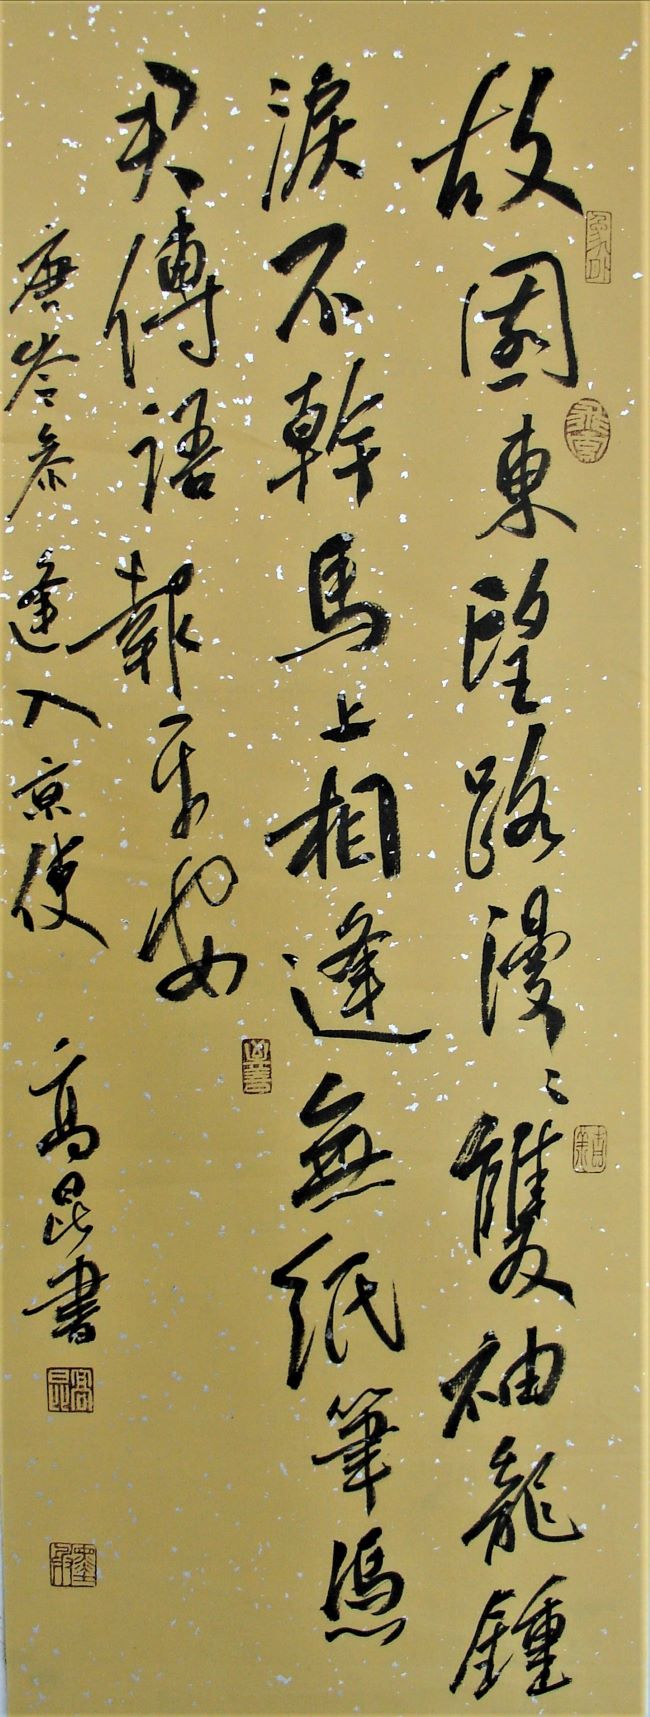 故園東望路漫〻雙袖龍鍾
淚不幹馬上相逢無紙筆馮
君傳語報平安
唐岑參逢入京使 高昆書
高昆